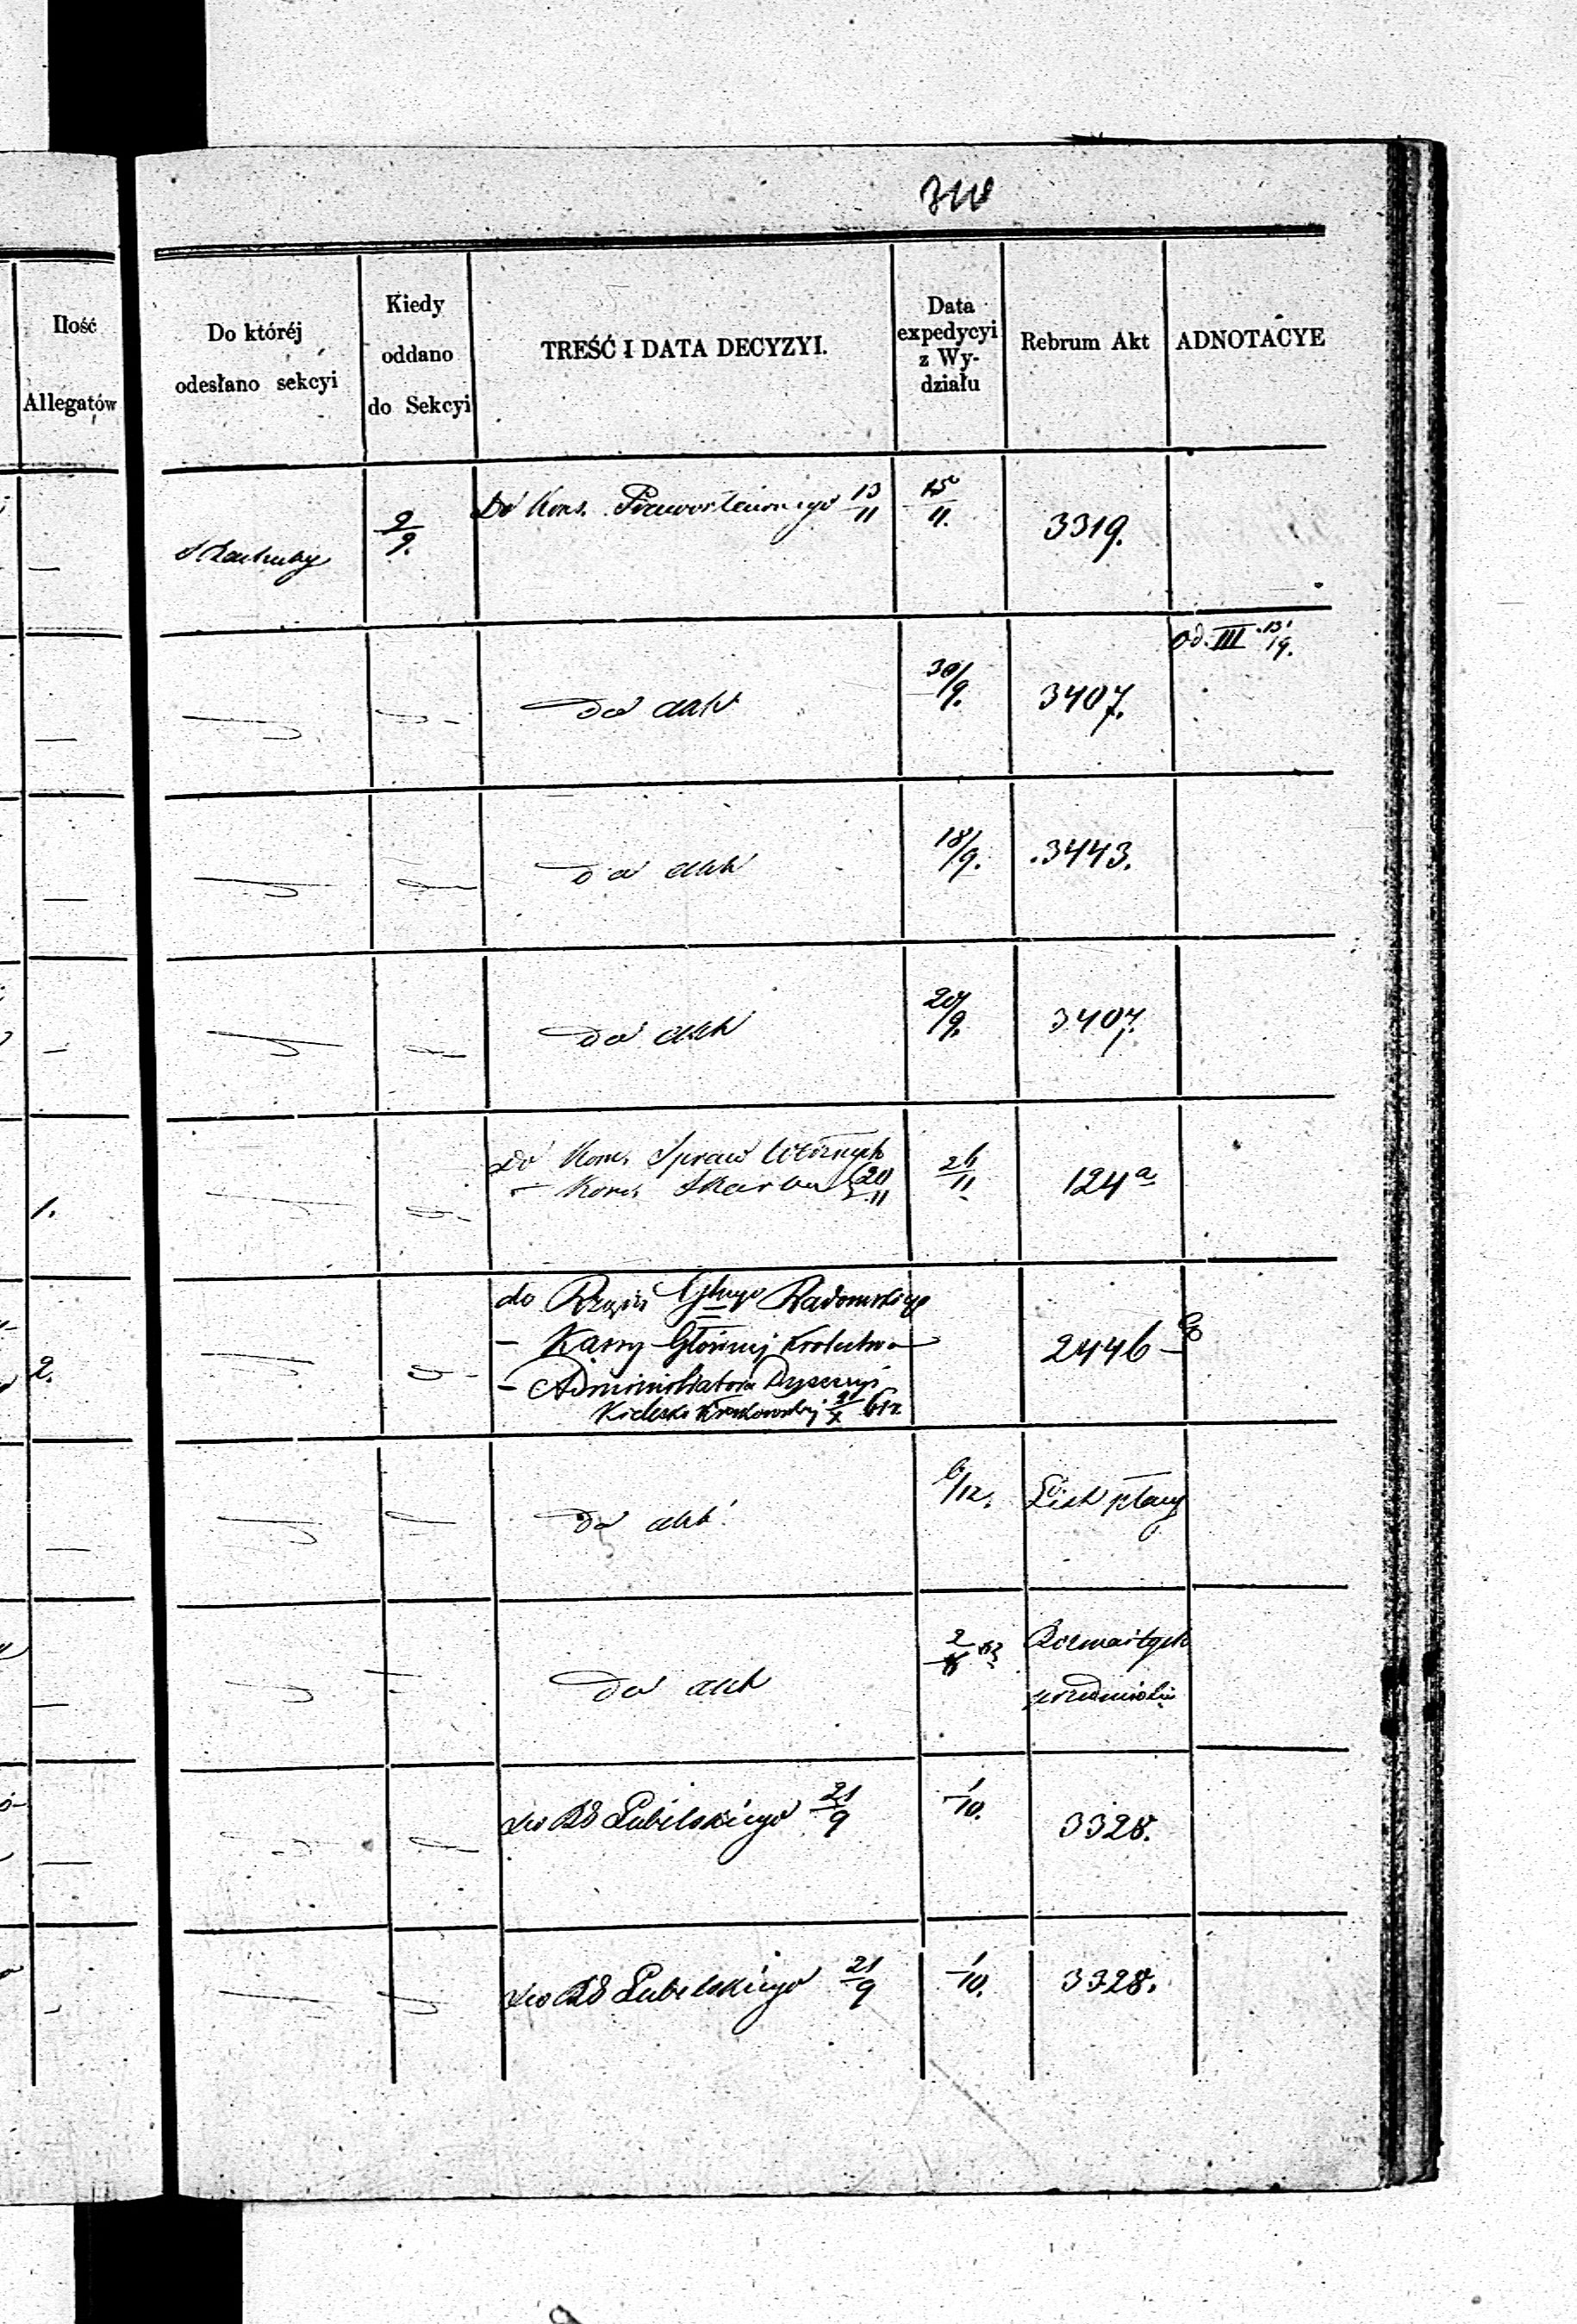 Ilość
Allegatów
Do któréj
odesłano sekcyi
Kiedy
oddano
do Sekcyi
TREŚĆ I DATA DECYZYI.
Data
expedycyi
z Wy-
działu
Rebrum Akt
ADNOTACYE
—
9/9.
Do Kons. 13/11
15/11.
3319.
—
Do akt
30/9.
3407.
Od. III 13/9.
—
Do akt
18/9.
3443.
—
Do akt
20/9.
3407.
1.
Do Kom. Spraw Wewnznych
— Kom. Skarbu 20/11
26/11
124 a
2.
do Rządu Gbnego Radomskiego
— Kassy Głównej Królestwa
— Administratora Dyecezyi
Kielecko Krakowskiej 31/X 62.
2446
—
Do akt
6/12.
—
Do akt
2
Rozmaitych
przedmiotów
—
do RG Lubelskiego 21/9
1/10.
3328.
—
do RG Lubelskiego 21/9
1/10.
3328.